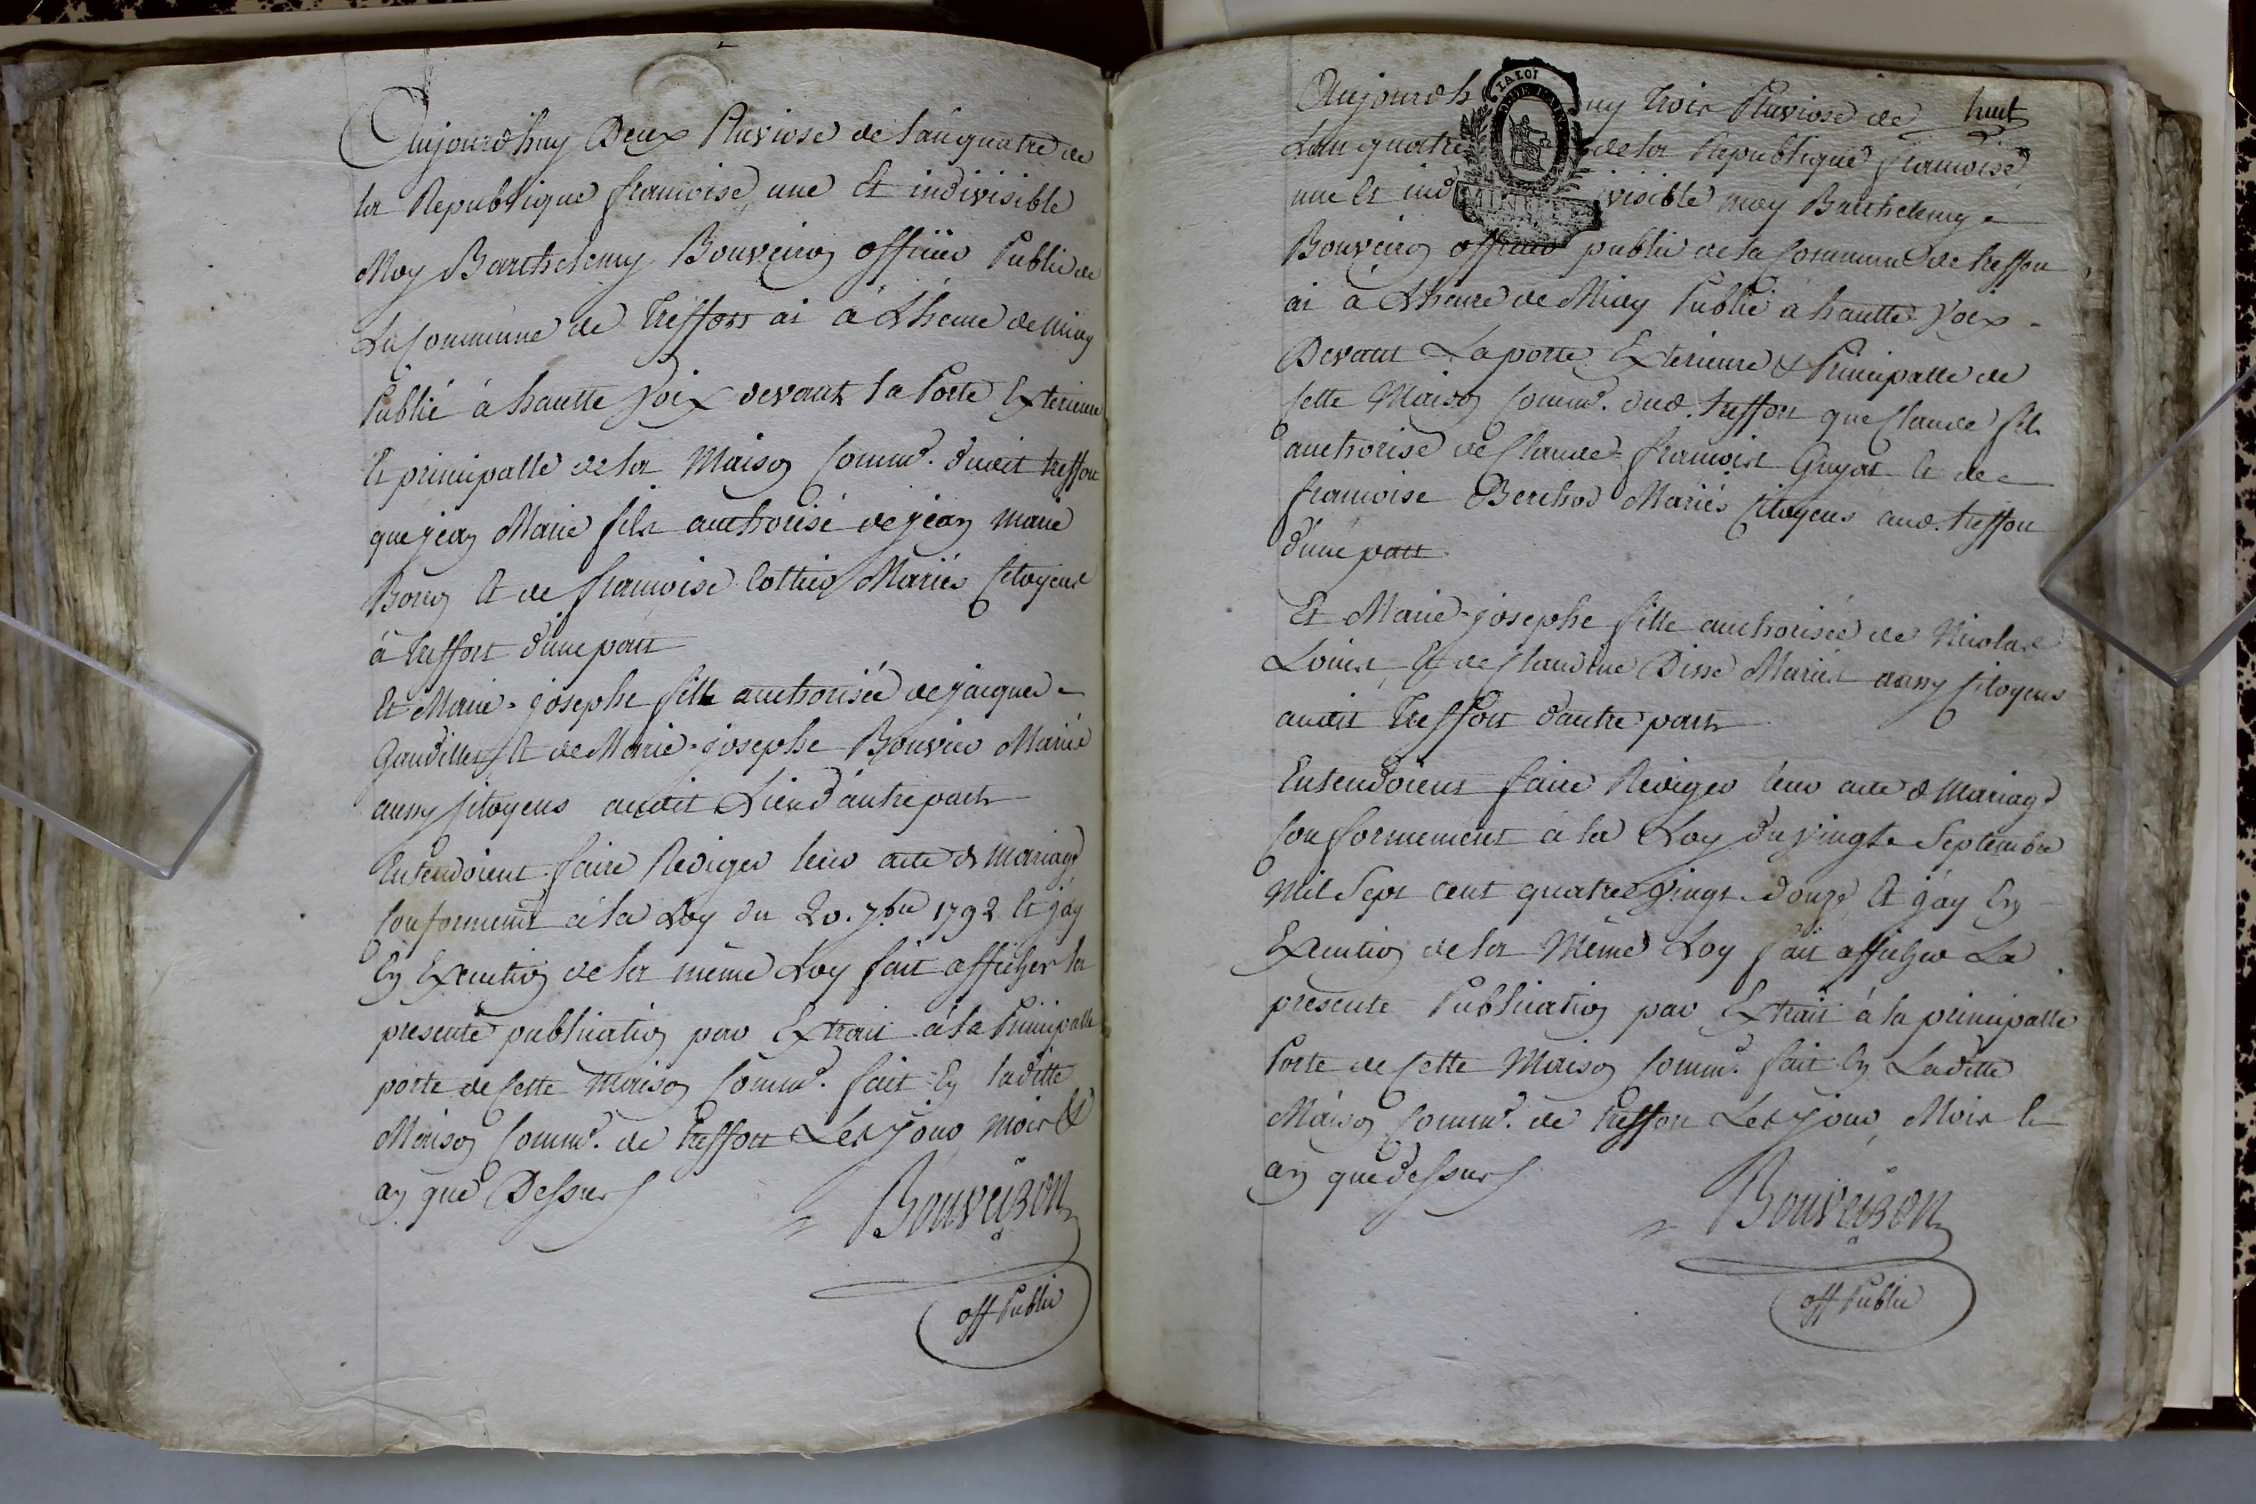 Aujourdhuy Deux Pluviose de l'an quatre de
la Republique francoise, une Et indivisible
Moy Barthelemy Bouveiron officier Public de
La Commune de Treffort ai à L'heure de miny
Publié à hautte Voix devant la Porte Exterieure
Et principalle de la Maison Comm.e dudit treffort
que jean Marie fils authorisé de jean marie
Boron Et de francoise Cottier Mariés Citoyens
à treffort d'une part
Et Marie-josephe fille authorisée de jacques
Gaudillet Et de Marie-josephe Bouvier Mariés
aussy Citoyens audit Lieu d'autre part
Entendoient faire Rediger leur acte de mariage
Conformemt à la Loy du 20. 7.bre 1792 Et j'ay
En Execution de la même Loy fait afficher la
presente publication par Extrait à la Principalle
porte de Cette Maison Comm.e fait En laditte
Maison Comm.e de treffort Les Jour mois &
an que Dessus
Bouveiron
off Public
huit
Aujourdhuy trois Pluviose de
L'an quatre de la Republique francoise,
une Et indivisible moy Barthelemy
LA LOI
Bouveiron officier public de la Commune de treffort
ai à L'heure de Midy Publié à hautte Voix
Devant La porte Exterieure & Principalle de
Cette Maison Comm.e dud. treffort que Claude fils
authorisé de Claude-francois Guyat Et de
francoise Berthod Mariés Citoyens aud. treffort
d'une part
Et Marie-josephe fille authorisée de Nicolas
Louis, Et de Claudine Disse Mariés aussy Citoyens
audit Treffort d'autre part
Entendoient faire Rediger leur acte de Mariage
Conformement à la Loy du vingt Septembre
Mil Sept cent quatre vingt-douze, Et j'ay En
Execution de la Même Loy fait afficher La
presente Publication par Extrait à la principalle
Porte de Cette Maison Comm.e fait En Laditte
Maison Comm.e de treffort Les jour, Mois &
an que dessus
Bouveiron
off Public